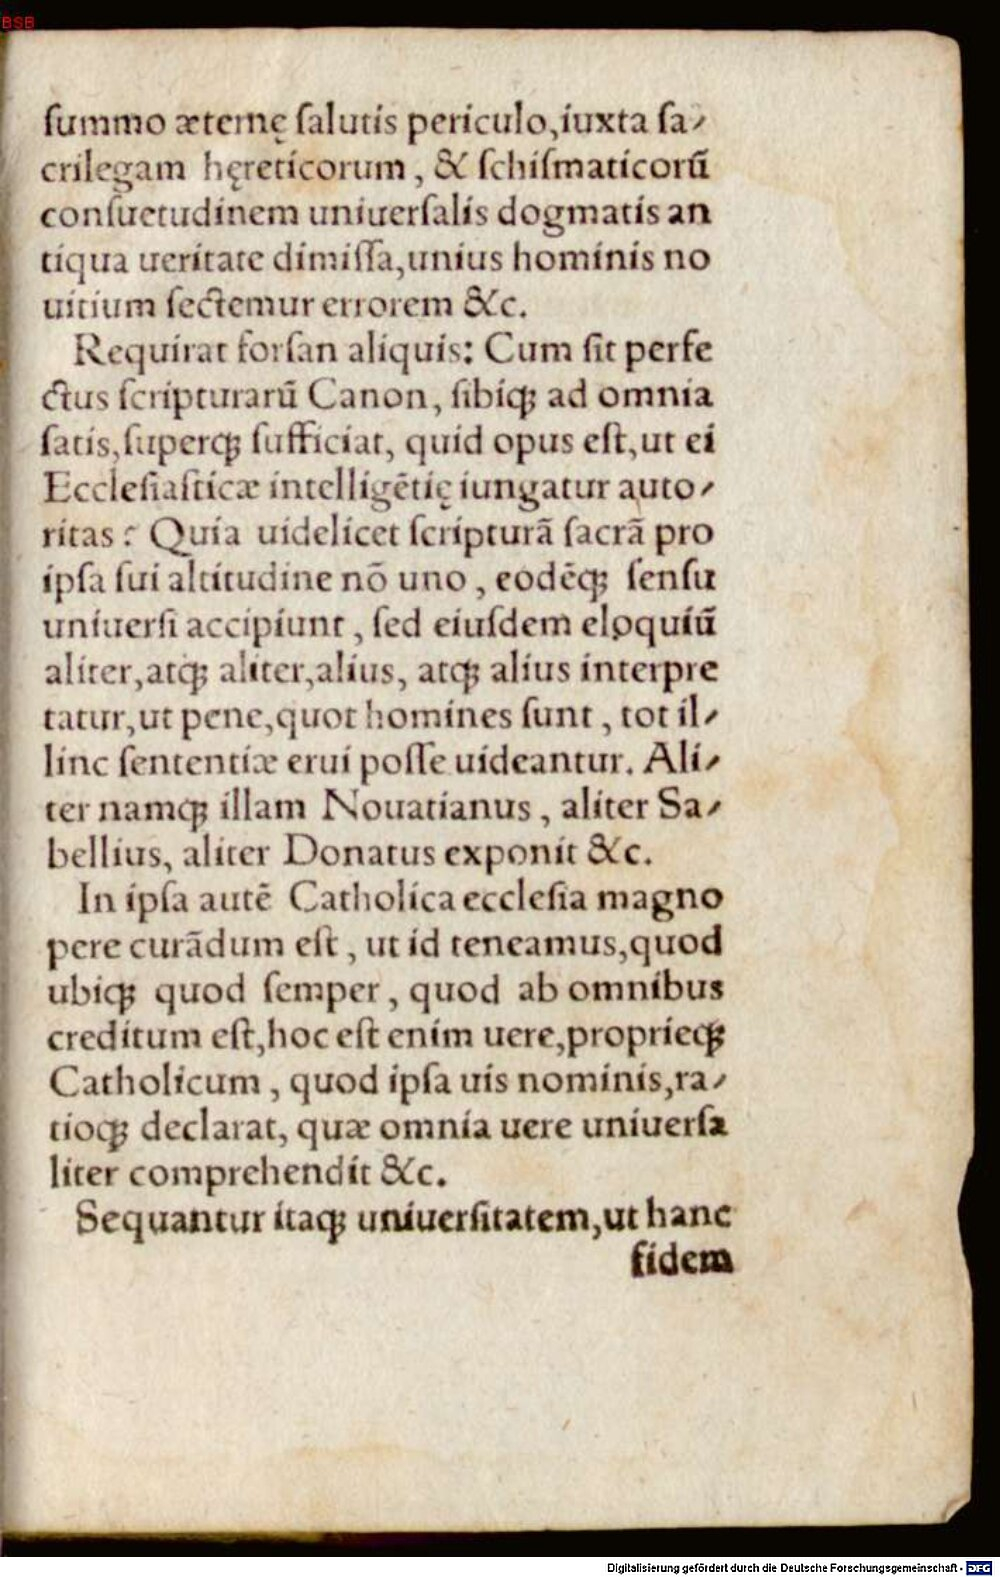 BSB
summo æternę salutis periculo,iuxta sa-
crilegam hęreticorum, & schismaticorũ
consuetudinem uniuersalis dogmatis an
tiqua ueritate dimissa,unius hominis no
uitium sectemur errorem &c.
Requirat forsan aliquis: Cum sit perfe
ctus scripturarũ Canon, sibiqꝫ ad omnia
satis,superqꝫ sufficiat, quid opus est,ut ei
Ecclesiasticæ intelligẽtię iungatur auto-
ritas? Quia uidelicet scripturã sacrã pro
ipsa sui altitudine nõ uno, eodẽqꝫ sensu
uniuersi accipiunt, sed eiusdem eloquiũ
aliter,atqꝫ aliter,alius, atqꝫ alius interpre
tatur,ut pene,quot homines sunt, tot il-
linc sententiæ erui posse uideantur. Ali-
ter namqꝫ illam Nouatianus, aliter Sa-
bellius, aliter Donatus exponit &c.
In ipsa autẽ Catholica ecclesia magno
pere curãdum est, ut id teneamus,quod
ubiqꝫ quod semper, quod ab omnibus
creditum est,hoc est enim uere,proprieqꝫ
Catholicum, quod ipsa uis nominis,ra-
tioqꝫ declarat, quæ omnia uere uniuersa
liter comprehendit &c.
Sequantur itaqꝫ uniuersitatem,ut hanc
fidem
Digitalisierung gefördert durch die Deutsche Forschungsgemeinschaft - DFG